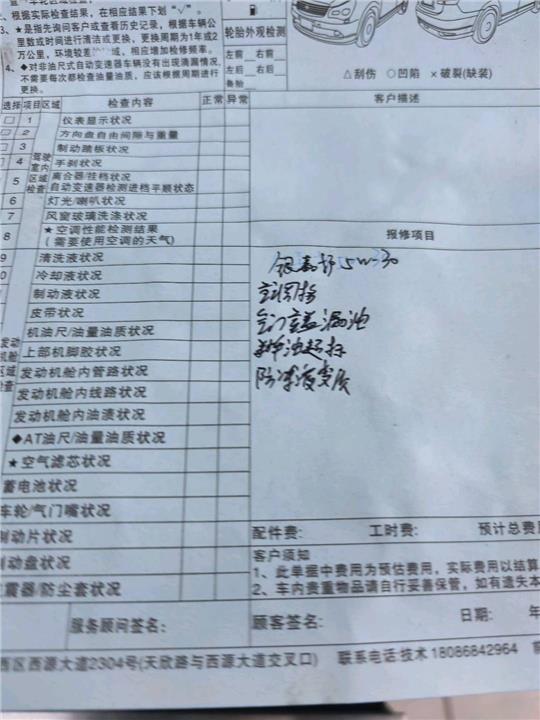 2、根据实际检查结果，在相应结果下划“√”。
3、★是指先询问客户或查看历史记录，根据车辆公
里数或时间进行清洁或更换，更换周期为1年或2
万公里，环境较差 域，相应增加检修频率。
4、◆对非油尺式自动变速器车辆没有出现滴漏情况，
不需要每次都检查油量油质，应该根据周期进行
更换。
轮胎外观检测
左前 右前
左后 右后
备胎
△刮伤 ○凹陷 ×破裂(缺装)
选择 项目 区域 检查内容 正常 异常 客户描述
驾驶室内区域检查
1 仪表显示状况
2 方向盘自由间隙与重量
3 制动踏板状况
4 手刹状况
5 离合器/挂档状况
自动变速器检测进档平顺状态
6 灯光/喇叭状况
7 风窗玻璃洗涤状况
8 ★空调性能检测结果
(需要使用空调的天气)
报修项目
9 清洗液状况
0 冷却液状况
制动液状况
皮带状况
机油尺/油量油质状况
上部机脚胶状况
发动机舱区域检查
发动机舱内管路状况
发动机舱内线路状况
发动机舱内油渍状况
◆AT油尺/油量油质状况
★空气滤芯状况
蓄电池状况
车轮/气门嘴状况
制动片状况
制动盘状况
震器/防尘套状况
银嘉护5W-30
空调格
气门室盖漏油
防冻液变质
配件费: 工时费: 预计总费
客户须知
1、此单据中费用为预估费用，实际费用以结算
2、车内贵重物品请自行妥善保管，如有遗失本
服务顾问签名: 顾客签名: 日期: 年
西区西源大道2304号(天欣路与西源大道交叉口) 联系电话:技术 18086842964